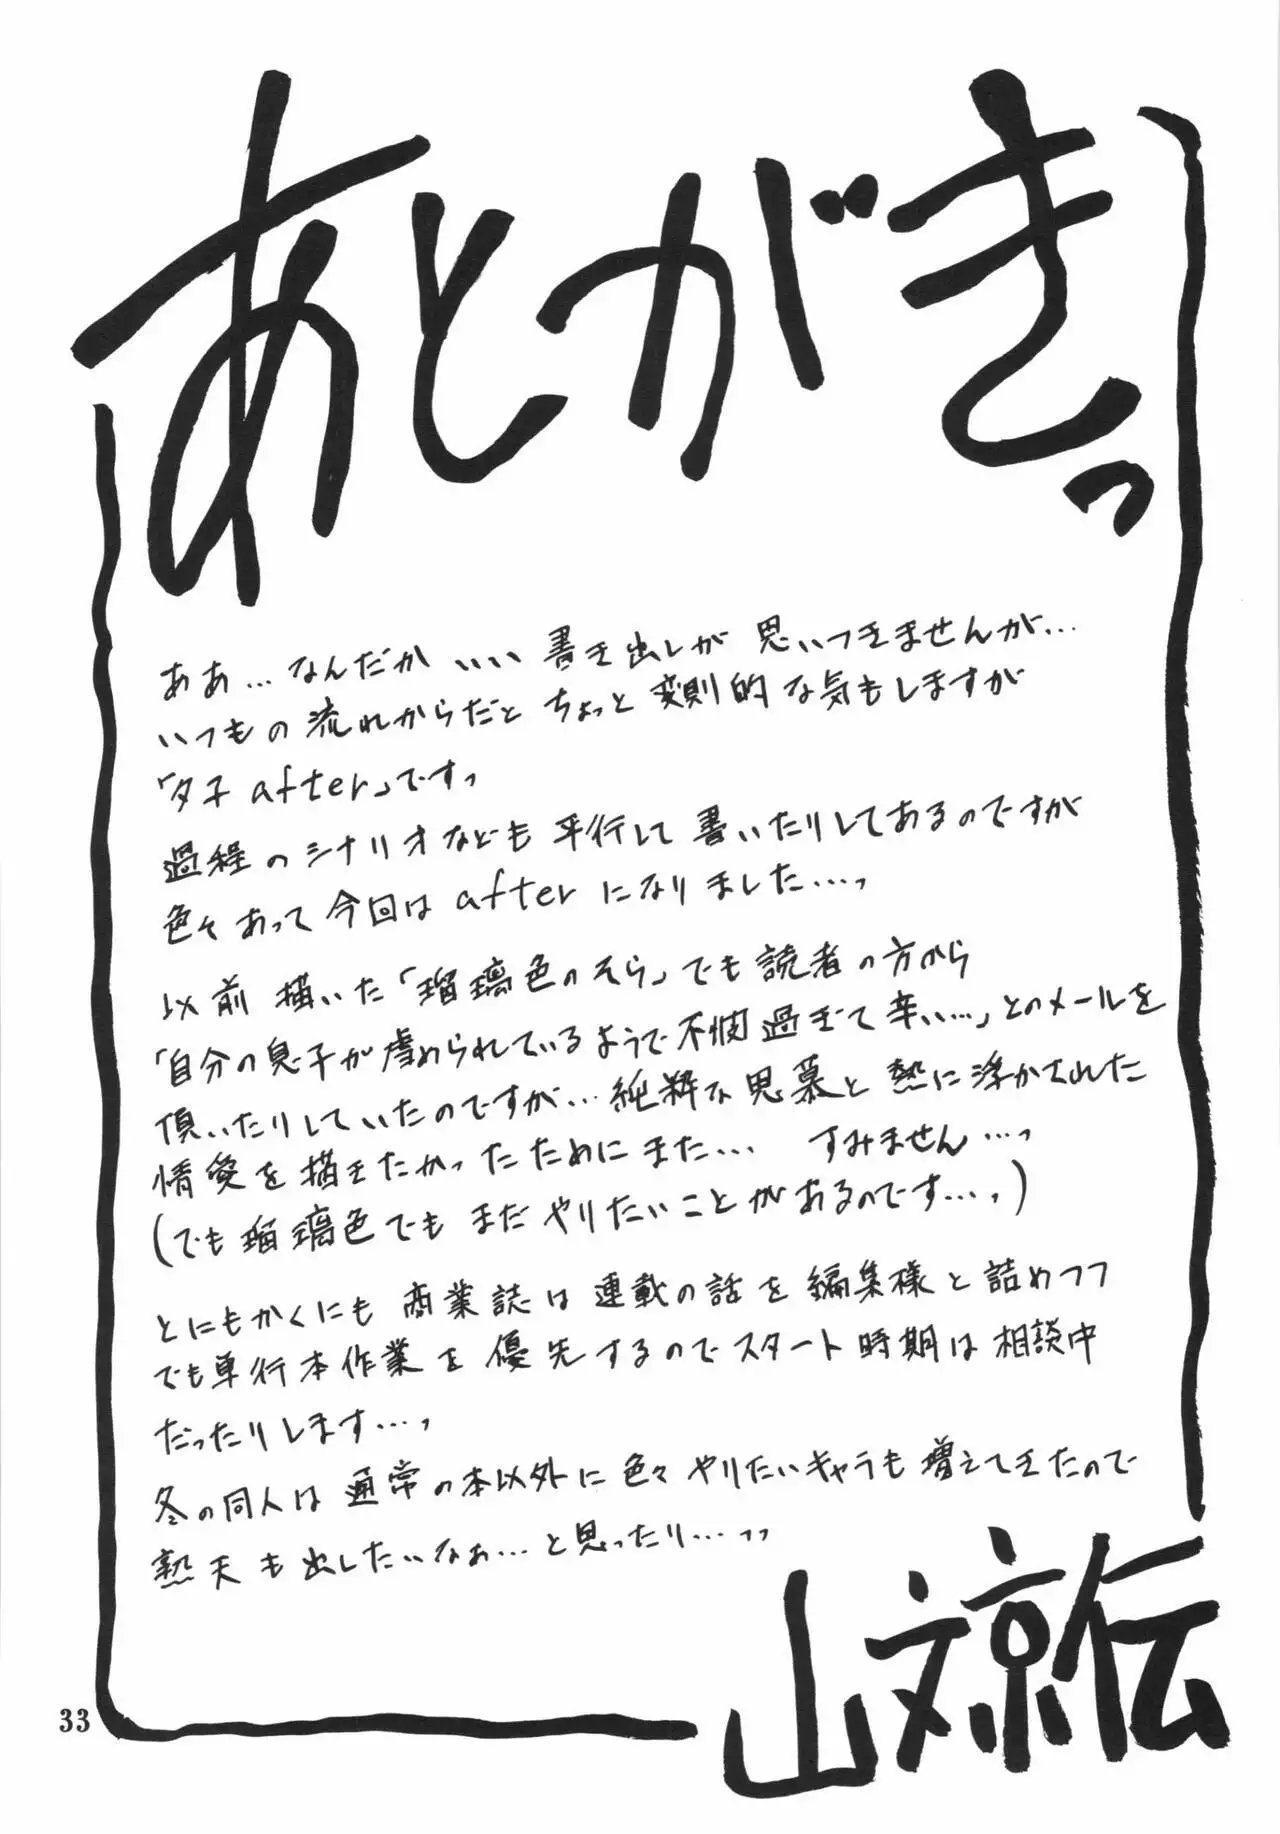 あとがきっ
ああ…なんだか いい 書き出しが 思いつきませんが…
いつもの流れからだと ちょっと 変則的な気もしますが
「夕子 after」ですっ
過程のシナリオなども平行して書いたりしてあるのですが
色々あって今回は after になりました…っ
以前描いた「瑠璃色のそら」でも読者の方から
「自分の息子が虐められているようで不憫過ぎて辛い…」とのメールを
頂いたりしていたのですが…純粋な思慕と熱に浮かされた
情愛を描きたかったためにまた… すみません…っ
(でも瑠璃色でも まだ やりたいことがあるのです…っ)
ともかくにも 商業誌は連載の話を編集様と詰めつつ
でも単行本作業を優先するのでスタート時期は相談中
だったりします…っ
冬の同人は通常の本以外に色々やりたいキャラも増えてきたので
熟天も出したいなぁ…と思ったり…っっ
山文京伝
33